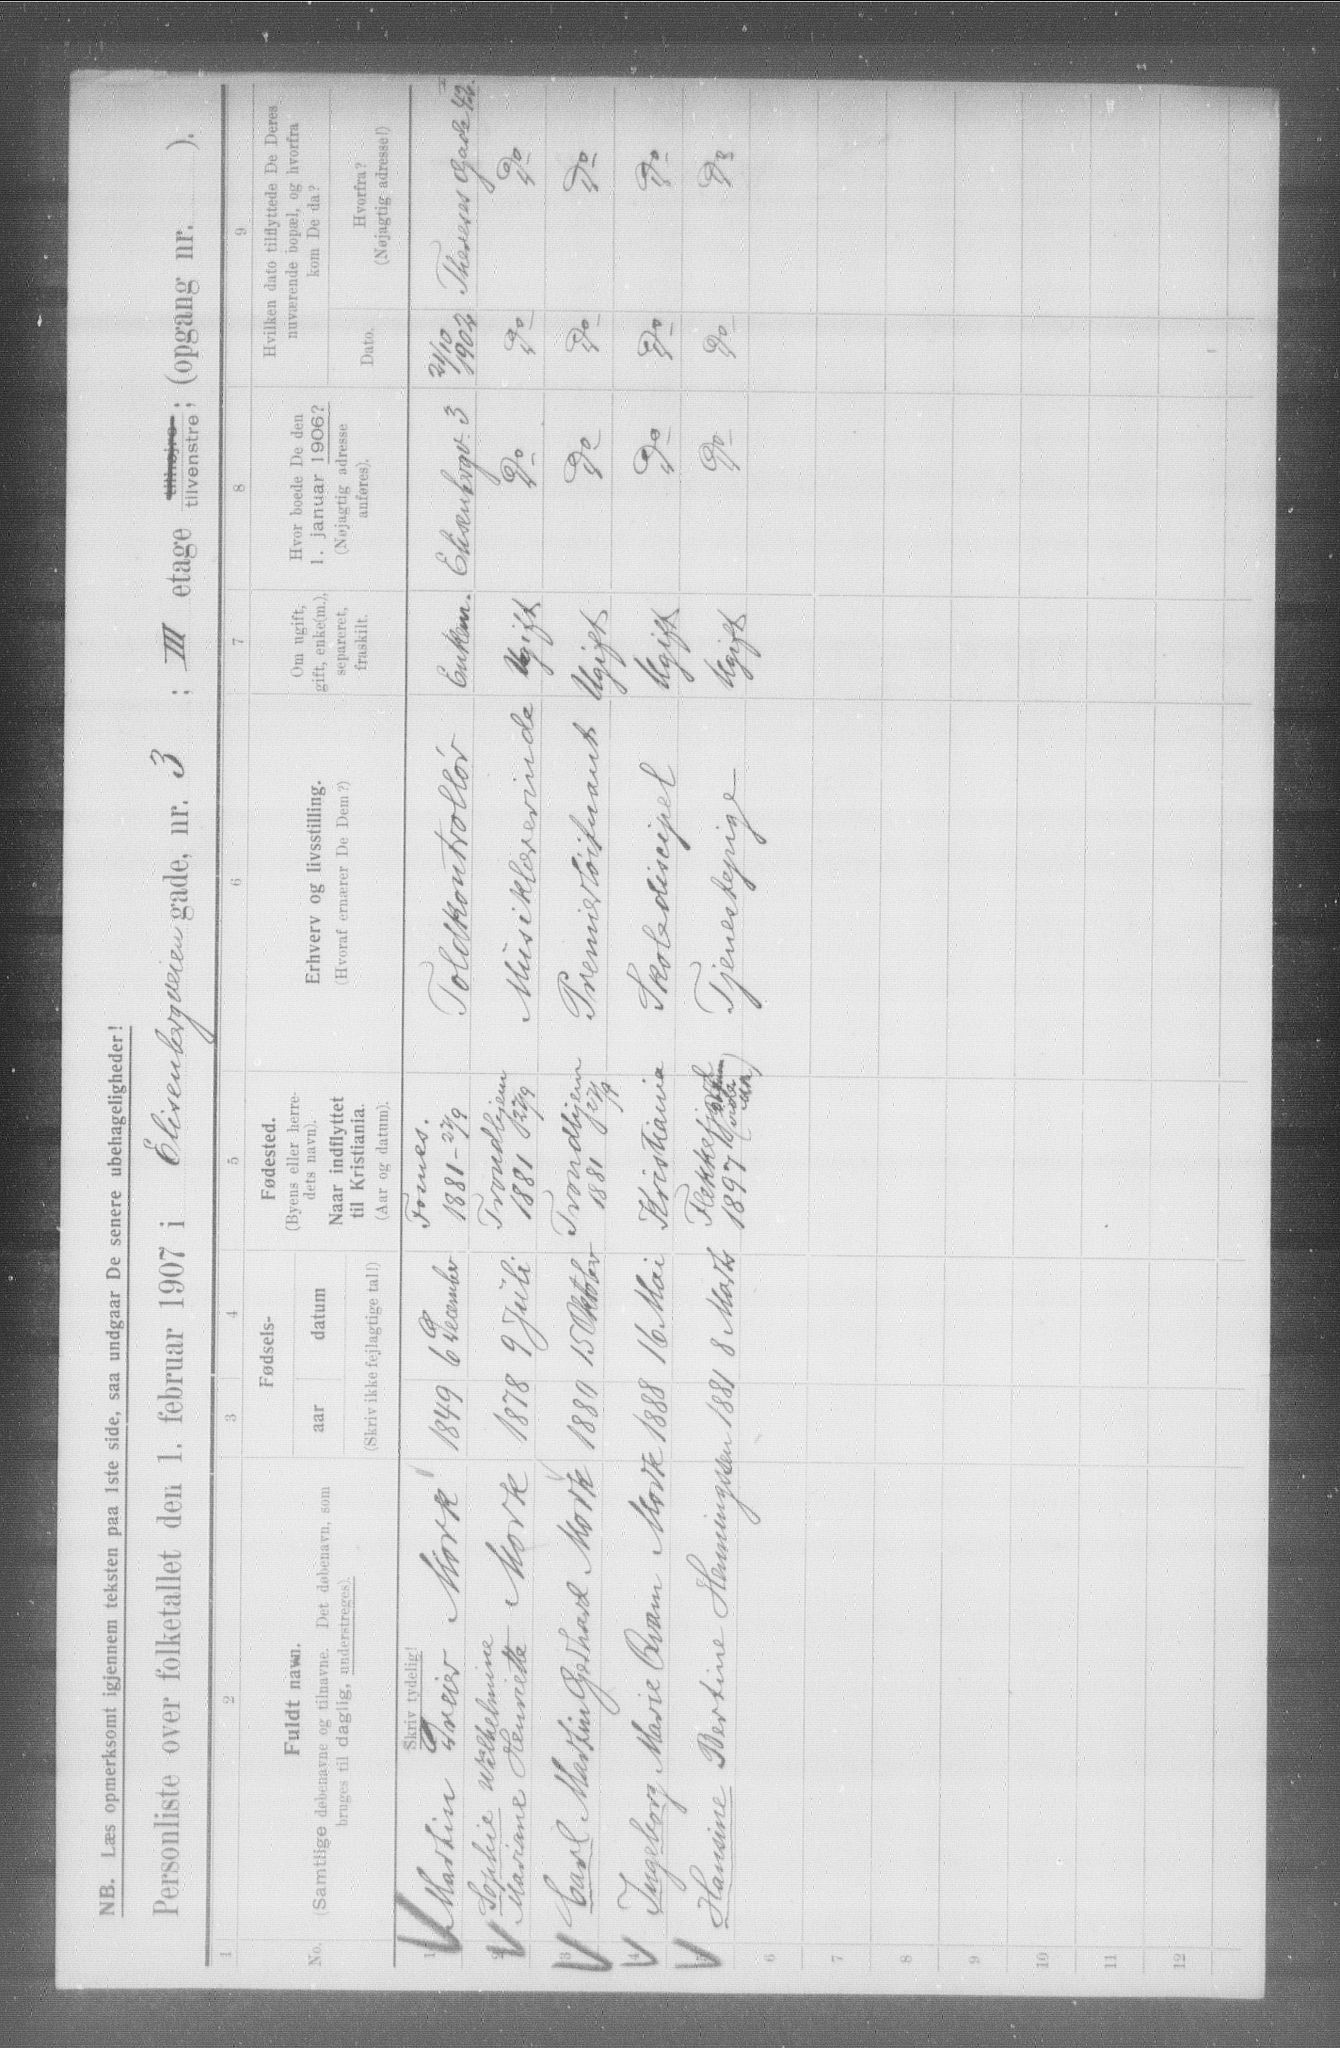 NB. Læs opmerksomt igjennem teksten paa 1ste side, saa undgaar De senere ubehageligheder!
Personliste over folketallet den 1. februar 1907 i Elisenbergveien gade, nr. 3 ; III etage tilhøjre tilvenstre ; (opgang nr. ).
1 2 3 4 5 6 7 8 9
No.
Fuldt navn.
(Samtlige døbenavne og tilnavne. Det døbenavn, som
bruges til daglig, understreges).
Fødsels-
aar datum
(Skriv ikke fejlagtige tal!)
Fødested.
(Byens eller herre-
dets navn).
Naar indflyttet
til Kristiania.
(Aar og datum).
Erhverv og livsstilling.
(Hvoraf ernærer De Dem?)
Om ugift,
gift, enke(m.),
separeret,
fraskilt.
Hvor boede De den
1. januar 1906?
(Nøjagtig adresse
anføres).
Hvilken dato tilflyttede De Deres
nuværende bopæl, og hvorfra
kom De da?
Dato.
Hvorfra?
(Nøjagtig adresse!)
Skriv tydelig!
1 Martin Greier Mørk 1849 6 December Fosnes. 1881 - 27/9 Toldkontrollør Enkem. Elisenbergv. 3 24/10 1902 Thereses Gade 42
2 Sophie Wilhelmine
Mariane Henriette Mørk 1878 9 Juli Trondhjem 1881 27/9 Musiklærerinde Ugift Do Do Do
3 Carl Martin Gerhard Mørk 1880 15 Oktober Trondhjem 1881 27/9 Premierløitnant Ugift Do Do Do
4 Ingeborg Marie Mørk 1888 16 Mai Kristiania Skolediscipel Ugift Do Do Do
5 Hansine Bertine Henningsen 1881 8 Marts Flekkefjord 1897 Tjenestepige Ugift Do Do Do
6
7
8
9
10
11
12